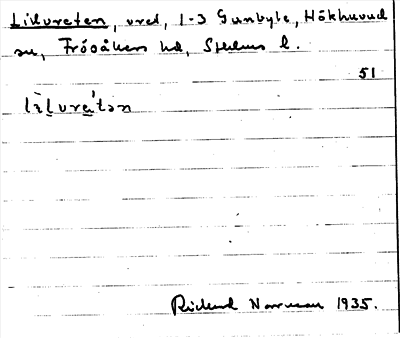 Lillvreten, vret, 1-3 Gunbyle, Hökhuvud
sn, Frösåkers hd, Sthlms l.
51
lìlvre̍tən
Rickard Norrman 1935.